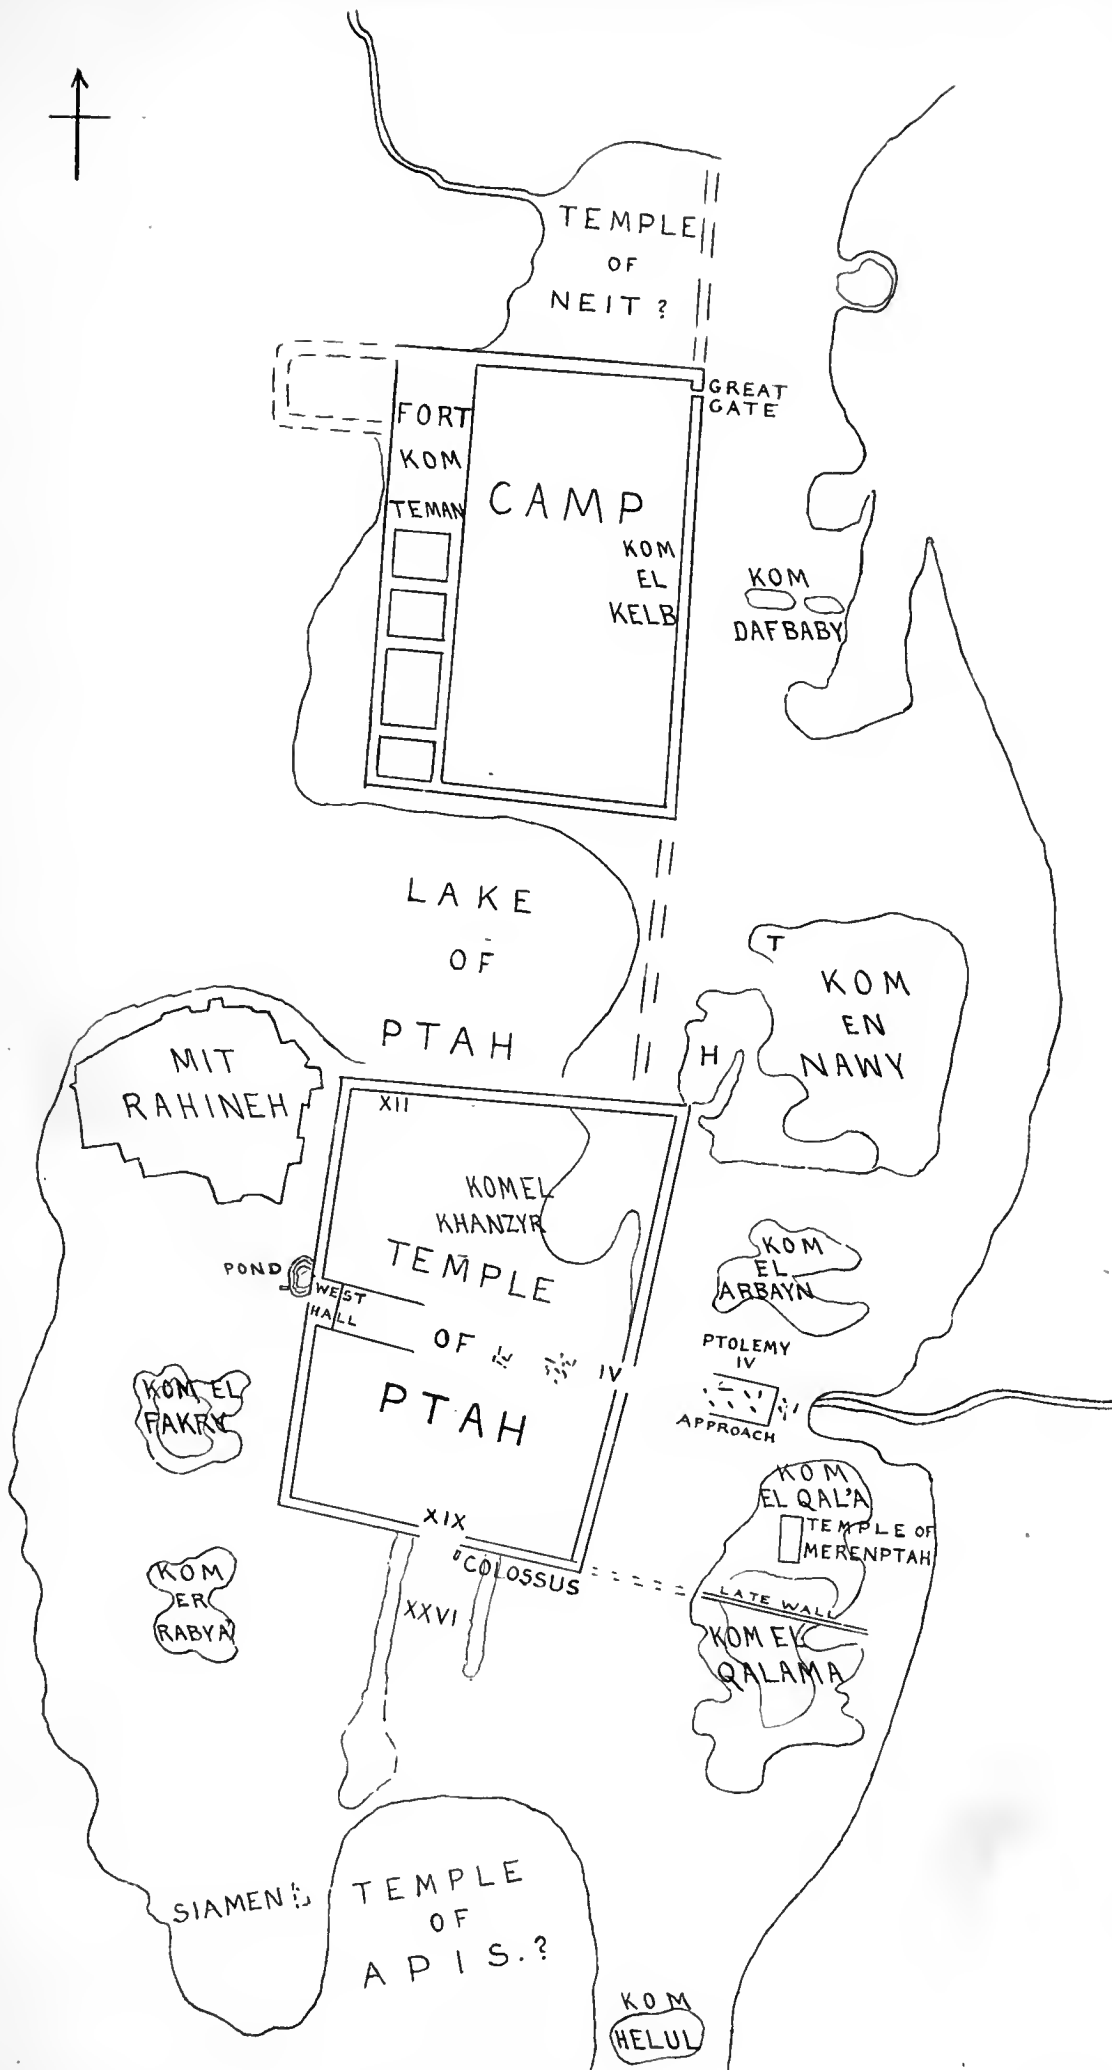 TEMPLE
OF
NEIT ?
GREAT
GATE
FORT
KOM
TEMAN
CAMP
KOM
EL
KELB
KOM
DAFBABY
LAKE
OF
PTAH
T
KOM
EN
NAWY
H
MIT
RAHINEH
XII
KOM EL
KHANZYR
TEMPLE
OF
PTAH
IV
POND
WEST
HALL
KOM
EL
ARBAYN
PTOLEMY
IV
APPROACH
KOM EL
FAKRY
KOM
EL QAL'A
TEMPLE OF
MERENPTAH
XIX
COLOSSUS
LATE WALL
KOM
ER
RABYA
XXVI
KOM EL
QALAMA
SIAMEN
TEMPLE
OF
APIS.?
KOM
HELUL